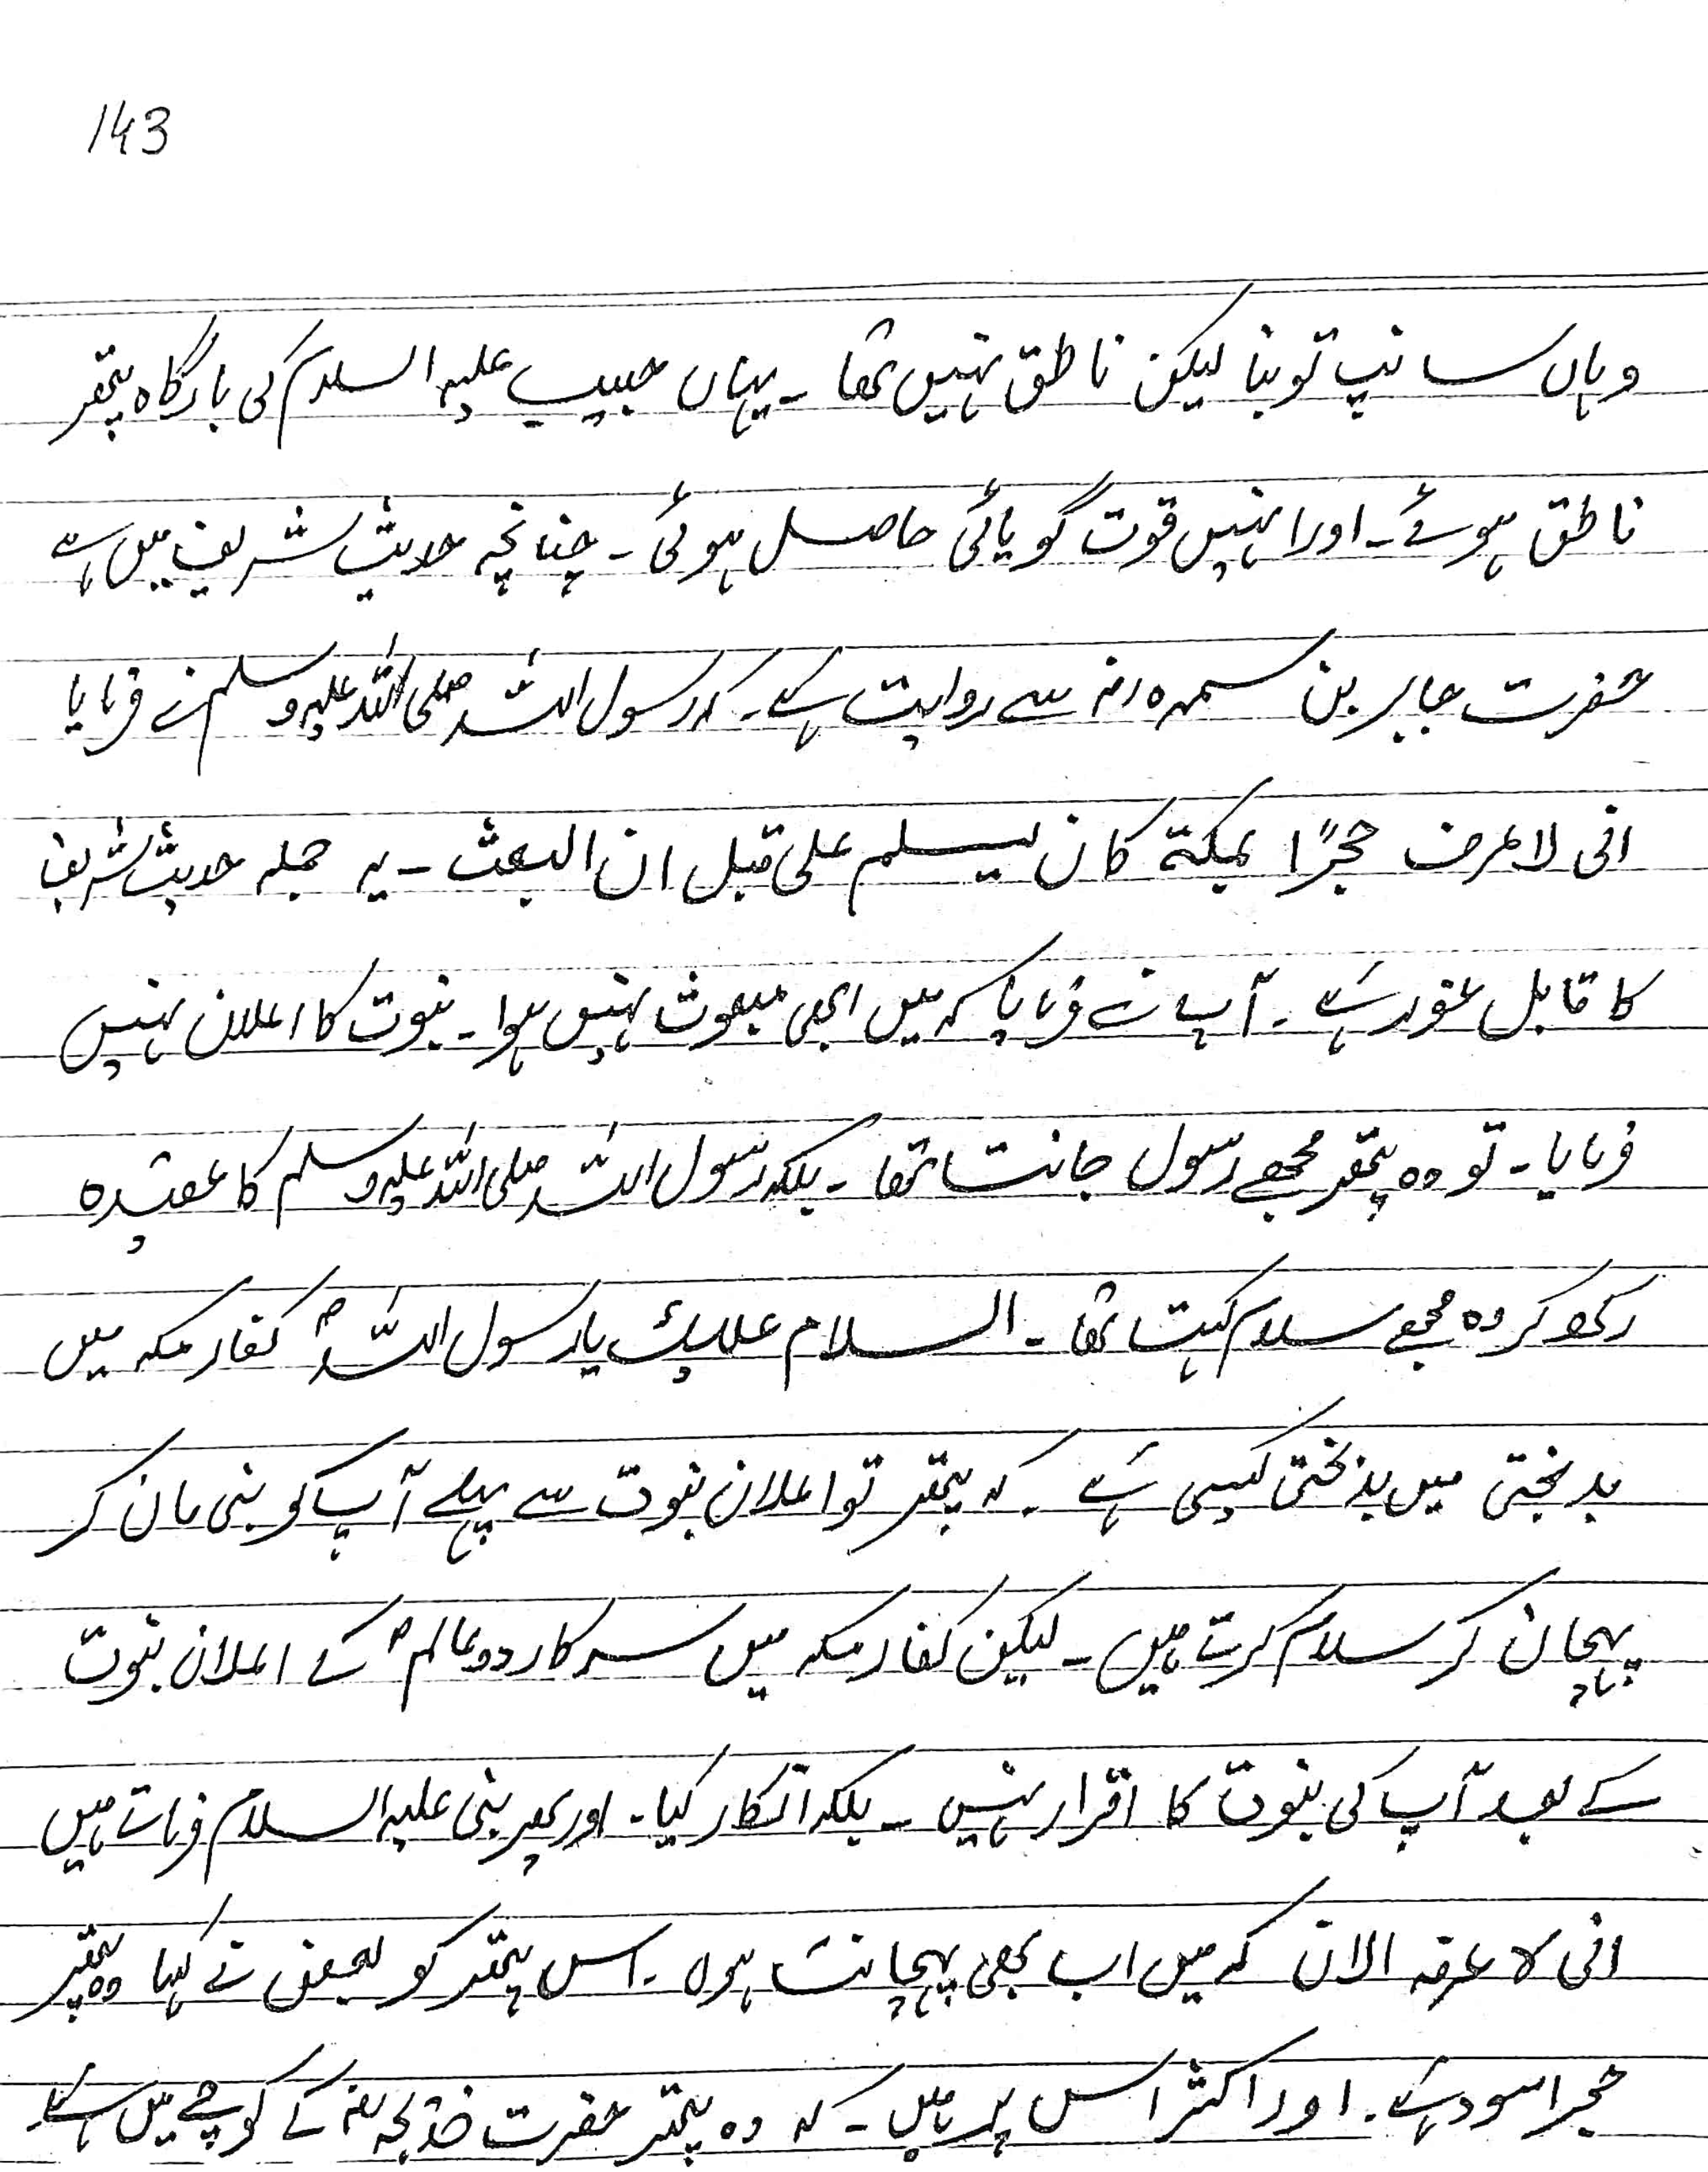 143
وہاں سانپ تو بنا لیکن ناطق نہیں تھا ۔ یہاں حبیب علیہ السلام کی بارگاہ پتھر
ناطق ہوئے ۔ اور انہیں قوت گویائی حاصل ہوئی ۔ چنانچہ حدیث شریف میں ہے
حضرت جابر بن سمرہ رضہ سے روایت ہے ۔ کہ رسول اللہ صلی اللہ علیہ وسلم نے فرمایا
انی لا عرف حجرًا بمکتہ کان یسلم علی قبل ان البعث ۔ یہ جملہ حدیث شریف
کا قابل غور ہے ۔ آپ نے فرمایا کہ میں ابھی مبعوث نہیں ہوا ۔ نبوت کا اعلان نہیں
فرمایا ۔ تو وہ پتھر مجھے رسول جانتا تھا ۔ بلکہ رسول اللہ صلی اللہ علیہ وسلم کا عقیدہ
رکھ کر وہ مجھے سلام کہتا تھا ۔ السلام علیک یا رسول اللہ ؐ کفار مکہ میں
بدبختی میں بدبختی کیسی ہے ۔ کہ پتھر تو اعلان نبوت سے پہلے آپ کو نبی مان کر
پہچان کر سلام کرتے ہیں ۔ لیکن کفار مکہ میں سرکار دوعالم ؐ کے اعلان نبوت
کے بعد آپ کی نبوت کا اقرار نہیں ۔ بلکہ انکار کیا ۔ اور پھر نبی علیہ السلام فرماتے ہیں
انی لا عرفہ الان کہ میں اب بھی پہچانتا ہوں ۔ اس پتھر کو بعض نے کہا وہ پتھر
حجر اسود ہے ۔ اور اکثر اس پر ہیں ۔ کہ وہ پتھر حضرت خدیجہ رضہ کے کوچے میں ہے